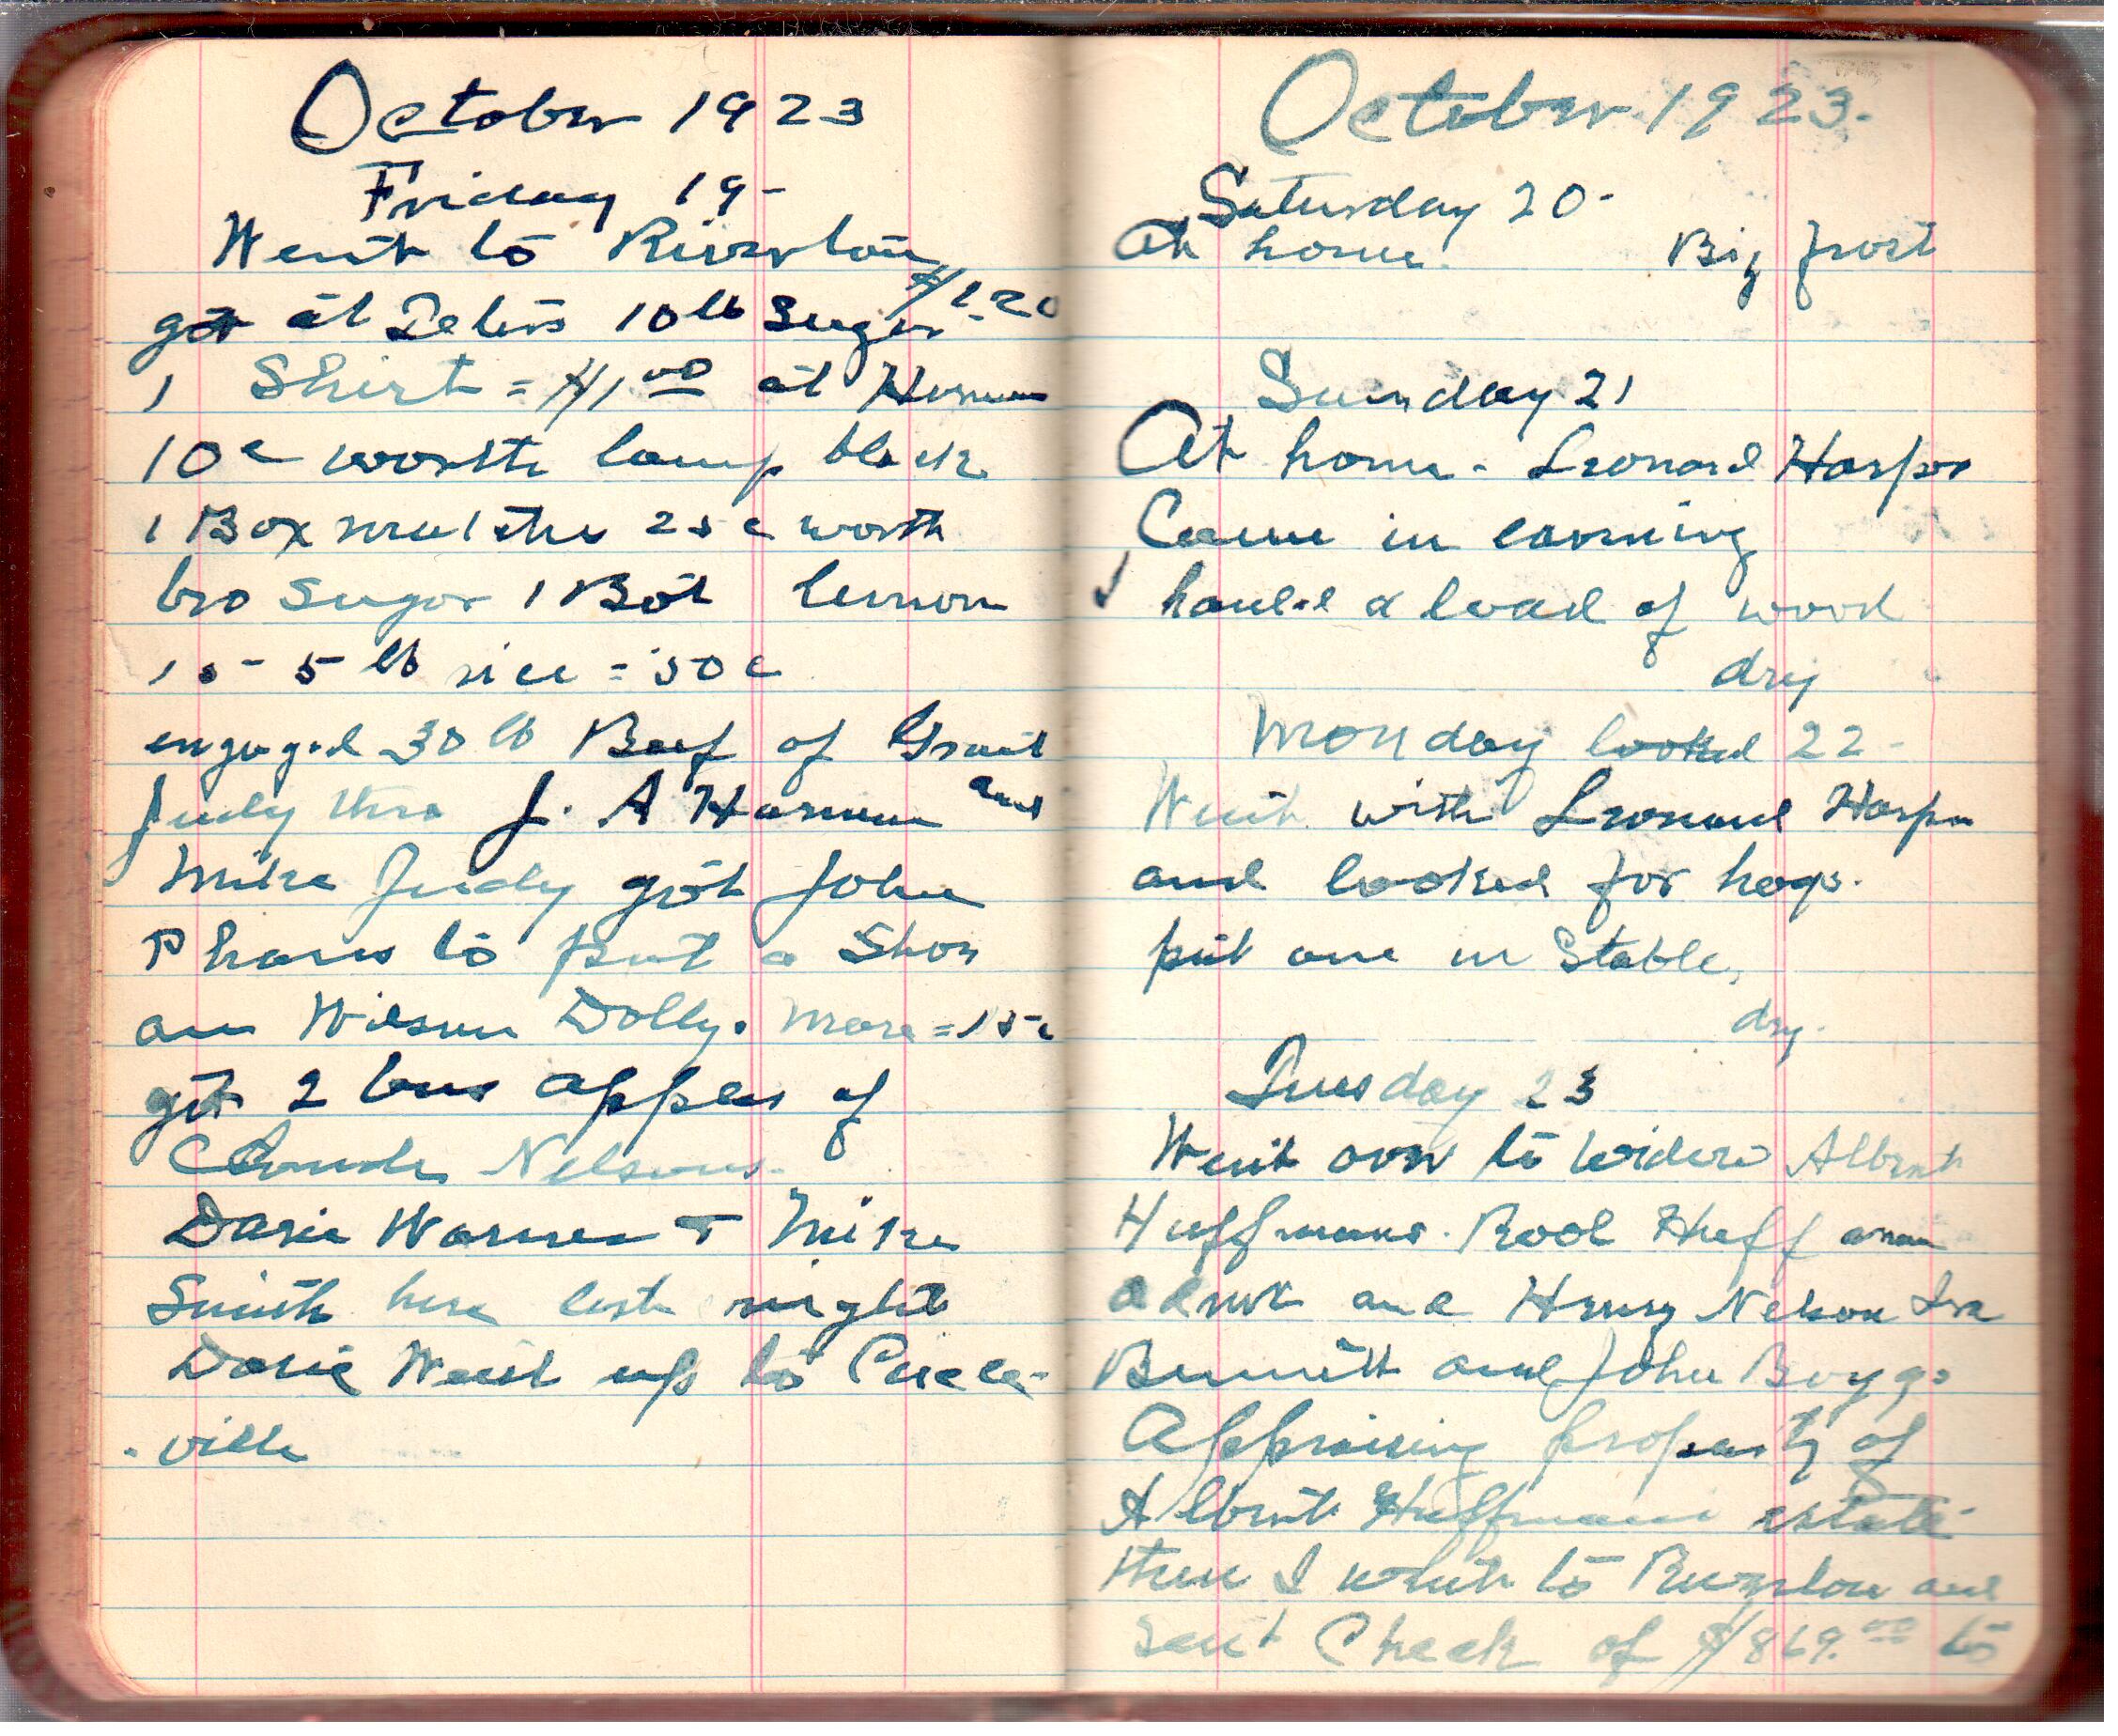 October 1923
Friday 19-
Went to Riverton
got at Teters 10 lb Sugar $1.20
1 Shirt = $1.00 at Harman
10c worth lamp black
1 Box 25c worth
bro Sugar 1 Bot lemon
15- 5 lb rice = 50c
engaged 30 lb Beef of Grant
Judy thro J. A Harman and
Mike Judy got John
Phares to put a Shoe
on Wilson Dolly. Mare = 15c
got 2 bus apples of
Claude Nelsons.
Dasie Warner + Mike
Smith here last night
Dasie Went up to Circle-
-ville
October 1923.
Saturday 20-
At home. Big frost
Sunday 21
At home - Leonard Harper
Came in evening
I hauled a load of wood
dry
Monday looked 22-
Went with Leonard Harper
and looked for hogs.
put one in Stable,
dry.
Tuesday 23
Went over to widow Albert
Huffmans. Rool Huffman
and Henry Nelson Ira
Bennett and John Boggs
Appraising property of
Albert Huffman estate
then I went to Riverton and
sent Check of $869.00 to